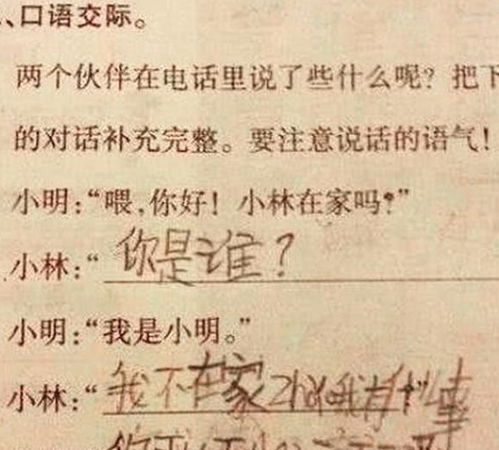 、口语交际。
两个伙伴在电话里说了些什么呢？把下
的对话补充完整。要注意说话的语气！
小明：“喂，你好！小林在家吗？”
小林：“你是谁？
小明：“我是小明。”
小林：“我不在家 找我有什么事”